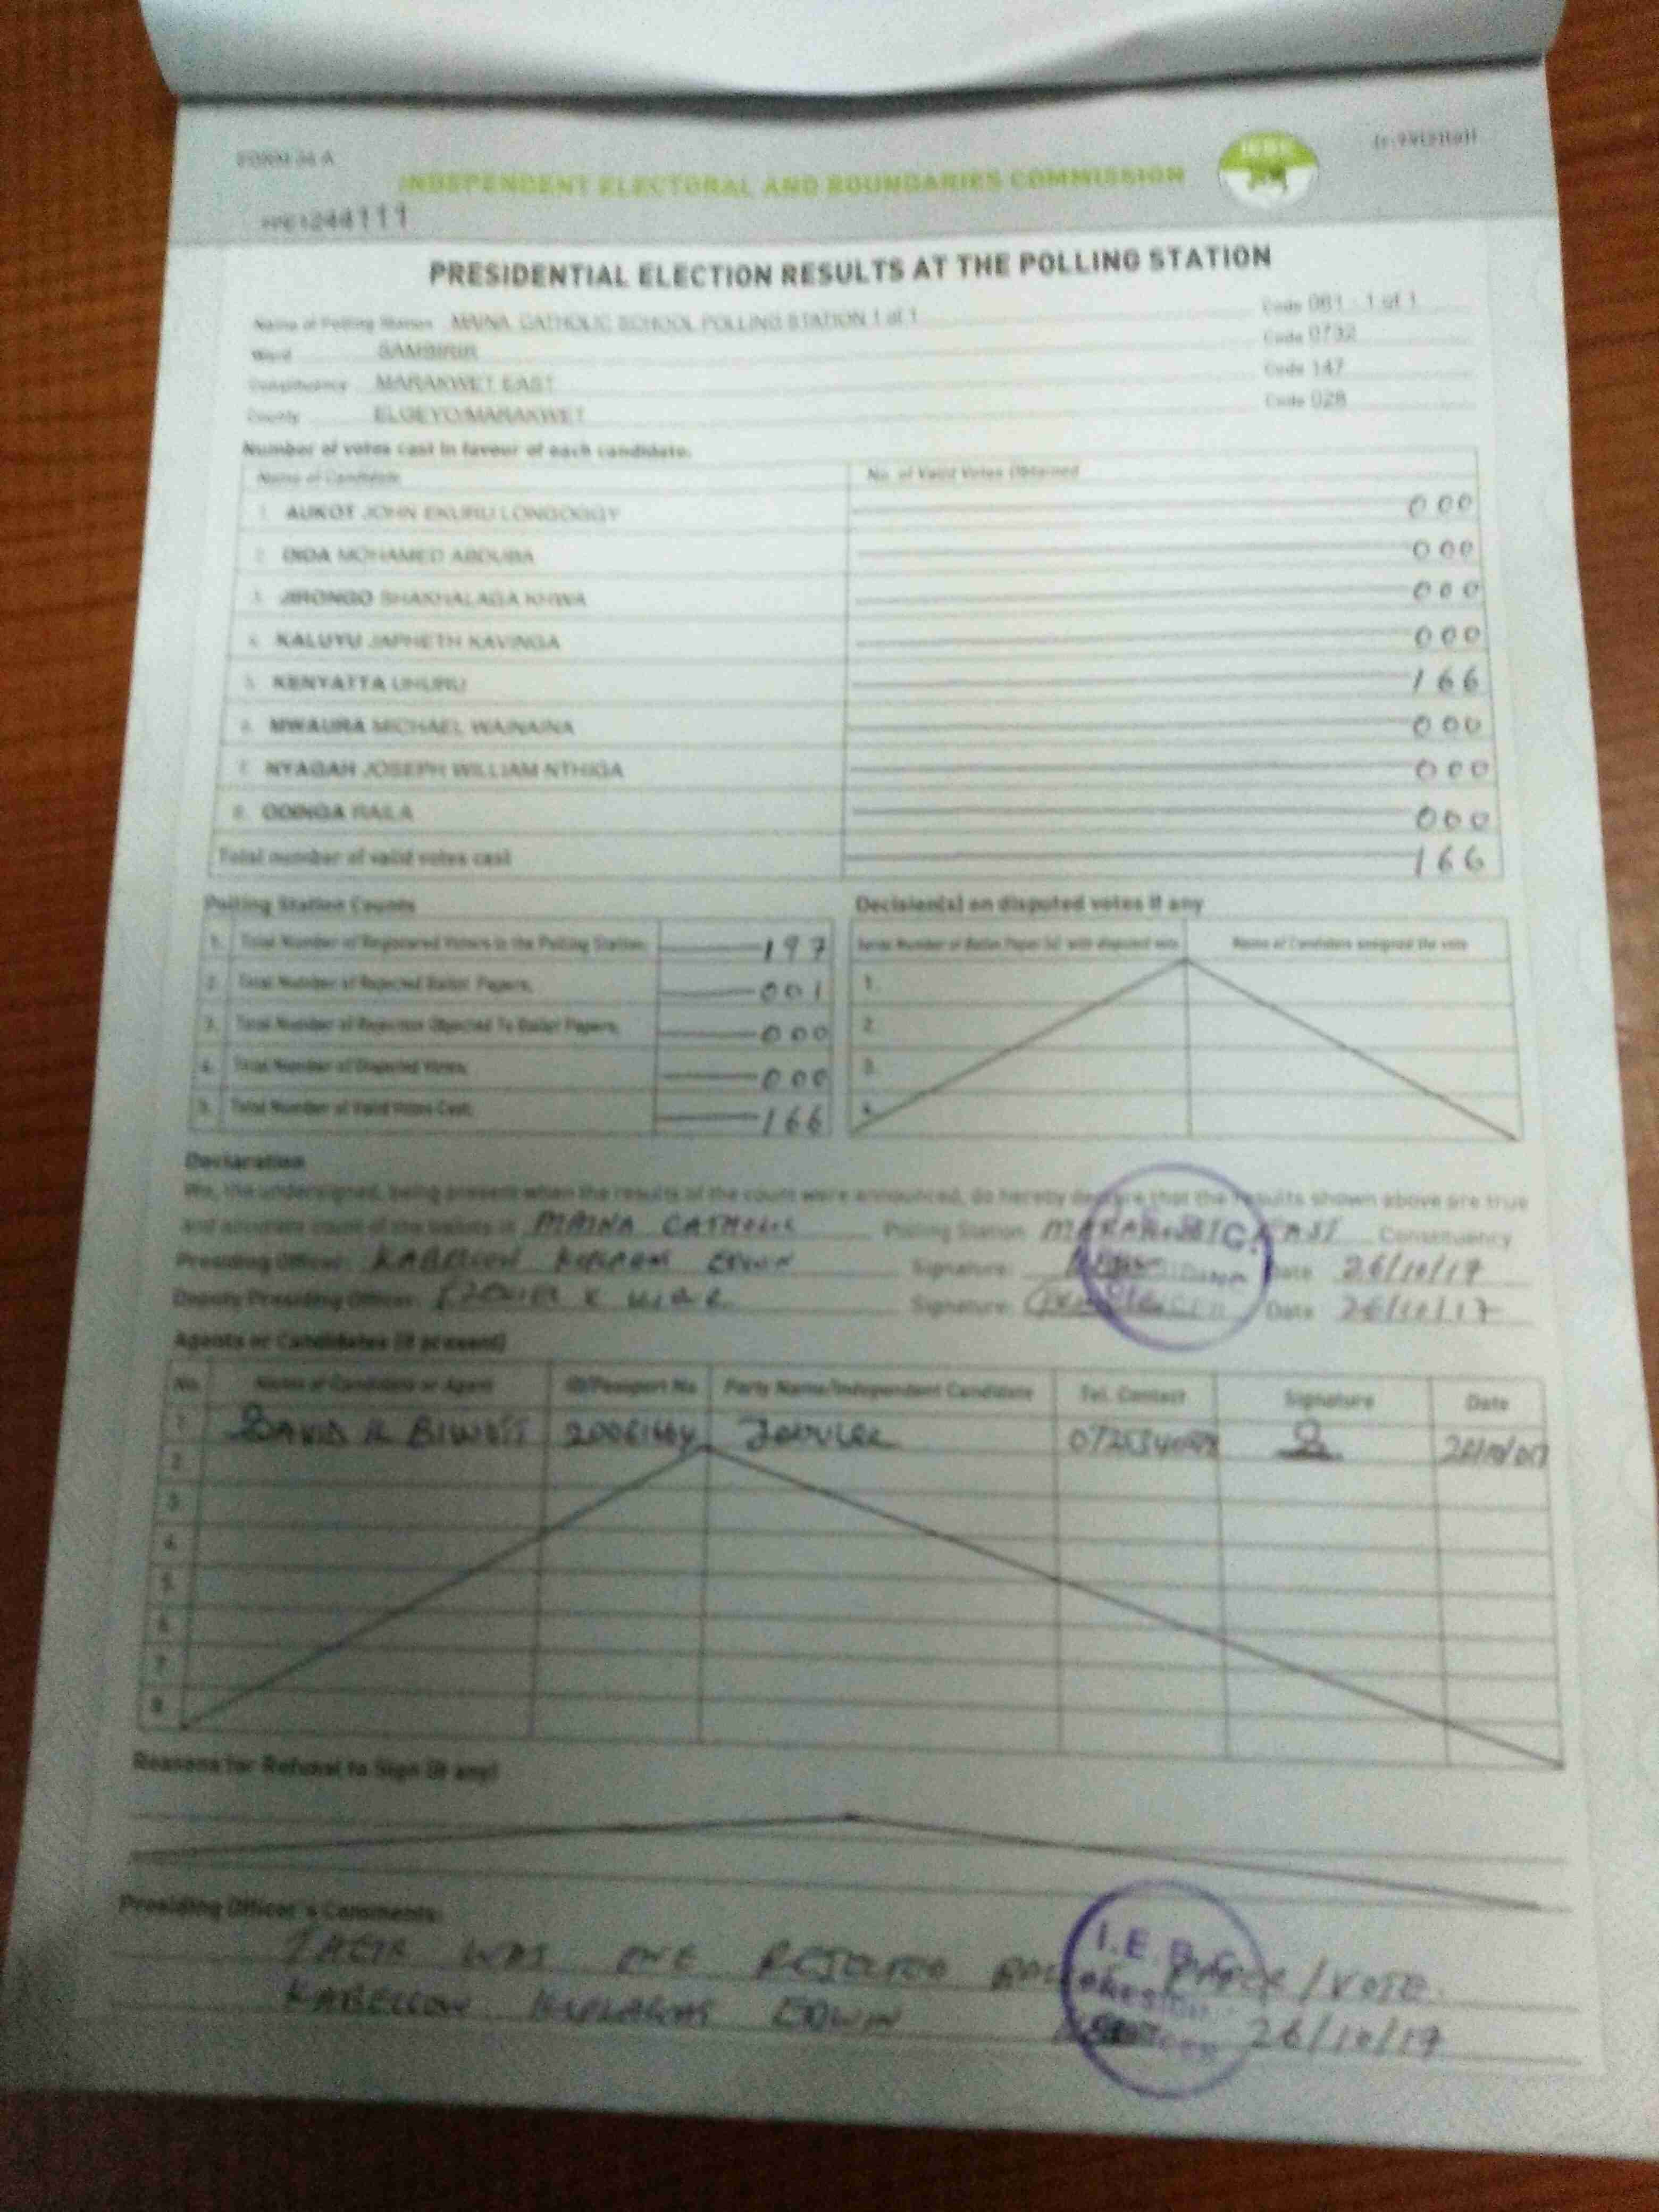 FORM 34 A
INDEPENDENT ELECTORAL AND BOUNDARIES COMMISSION
IEBC
PRESIDENTIAL ELECTION RESULTS AT THE POLLING STATION
Name of Polling Station MAINA CATHOLIC SCHOOL POLLING STATION 1 of 1 Code 061 - 1 of 1
Ward SAMBIRIR Code 0732
Constituency MARAKWET EAST Code 147
County ELGEYO/MARAKWET Code 028
Number of votes cast in favour of each candidate.
Name of Candidate No. of Valid Votes Obtained
1. AUKOT JOHN EKURU LONGOGGY 000
2. DIDA MOHAMED ABDUBA 000
3. JIRONGO SHAKHALAGA KHWA 000
4. KALUYU JAPHETH KAVINGA 000
5. KENYATTA UHURU 166
6. MWAURA MICHAEL WAINAINA 000
7. NYAGAH JOSEPH WILLIAM NTHIGA 000
8. ODINGA RAILA 000
Total number of valid votes cast 166
Polling Station Counts
1. Total Number of Registered Voters in the Polling Station 197
2. Total Number of Rejected Ballot Papers. 001
3. Total Number of Rejection Objected To Ballot Papers. 000
4. Total Number of Disputed Votes. 000
5. Total Number of Valid Votes Cast. 166
Decision(s) on disputed votes if any
Serial Number of Ballot Paper (s) with disputed vote Name of Candidate assigned the vote
1.
2.
3.
4.
Declaration
We, the undersigned, being present when the results of the count were announced, do hereby declare that the results shown above are true
and accurate count of the ballots in MAINA CATHOLIC Polling Station MARAKWET EAST Constituency
Presiding Officer: EDWIN Signature: Date 26/10/17
Deputy Presiding Officer: Signature: Date 26/10/17
Agents or Candidates (if present)
No. Name of Candidate or Agent ID/Passport No Party Name/Independent Candidate Tel. Contact Signature Date
1. DAVID K BIWOTT JUBILEE
2.
3.
4.
5.
6.
7.
8.
Reasons for Refusal to Sign (if any)
Presiding Officer's Comments:
THEIR WAS ONE REJECTED BALLOT PAPER/VOTE.
EDWIN 26/10/17
I.E.B.C.